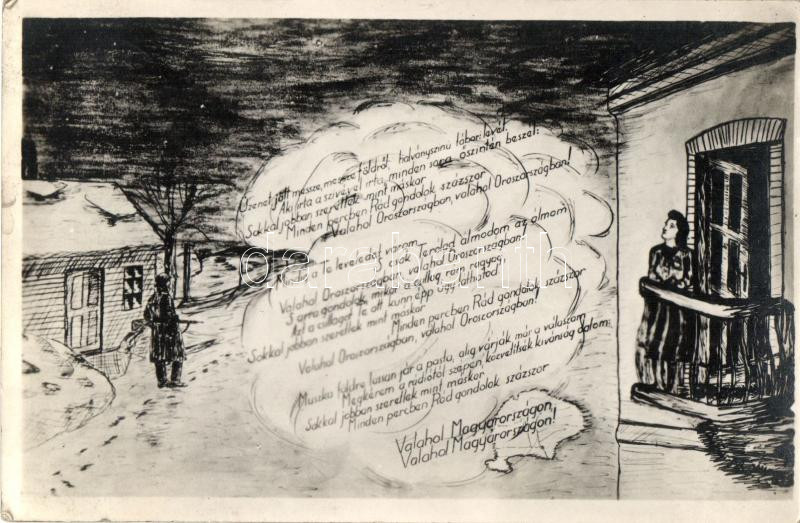 Üzenet jött messze, messze földről halványszínű tábori levél
Aki írta a szívével írta, minden sora őszintén beszél:
Sokkal jobban szeretlek mint máskor
Minden percben Rád gondolok százszor
Valahol Oroszországban, valahol Oroszországban!
Mindig a Te leveledet várom
S csak Terólad álmodom az álmom
Valahol Oroszországban, valahol Oroszországban!
S arra gondolok, mikor a csillag rám ragyog
Azt a csillagot Te ott kunn épp úgy láthatod
Sokkal jobban szeretlek mint máskor
Minden percben Rád gondolok százszor
Valahol Oroszországban, valahol Oroszországban!
Muszka földre lassan jár a posta, alig várják már a válaszom
Megkérem a rádiótól szépen, közvetítsék kívánság dalom:
Sokkal jobban szeretlek mint máskor
Minden percben Rád gondolok százszor
Valahol Magyarországon,
Valahol Magyarországon!
darabanth